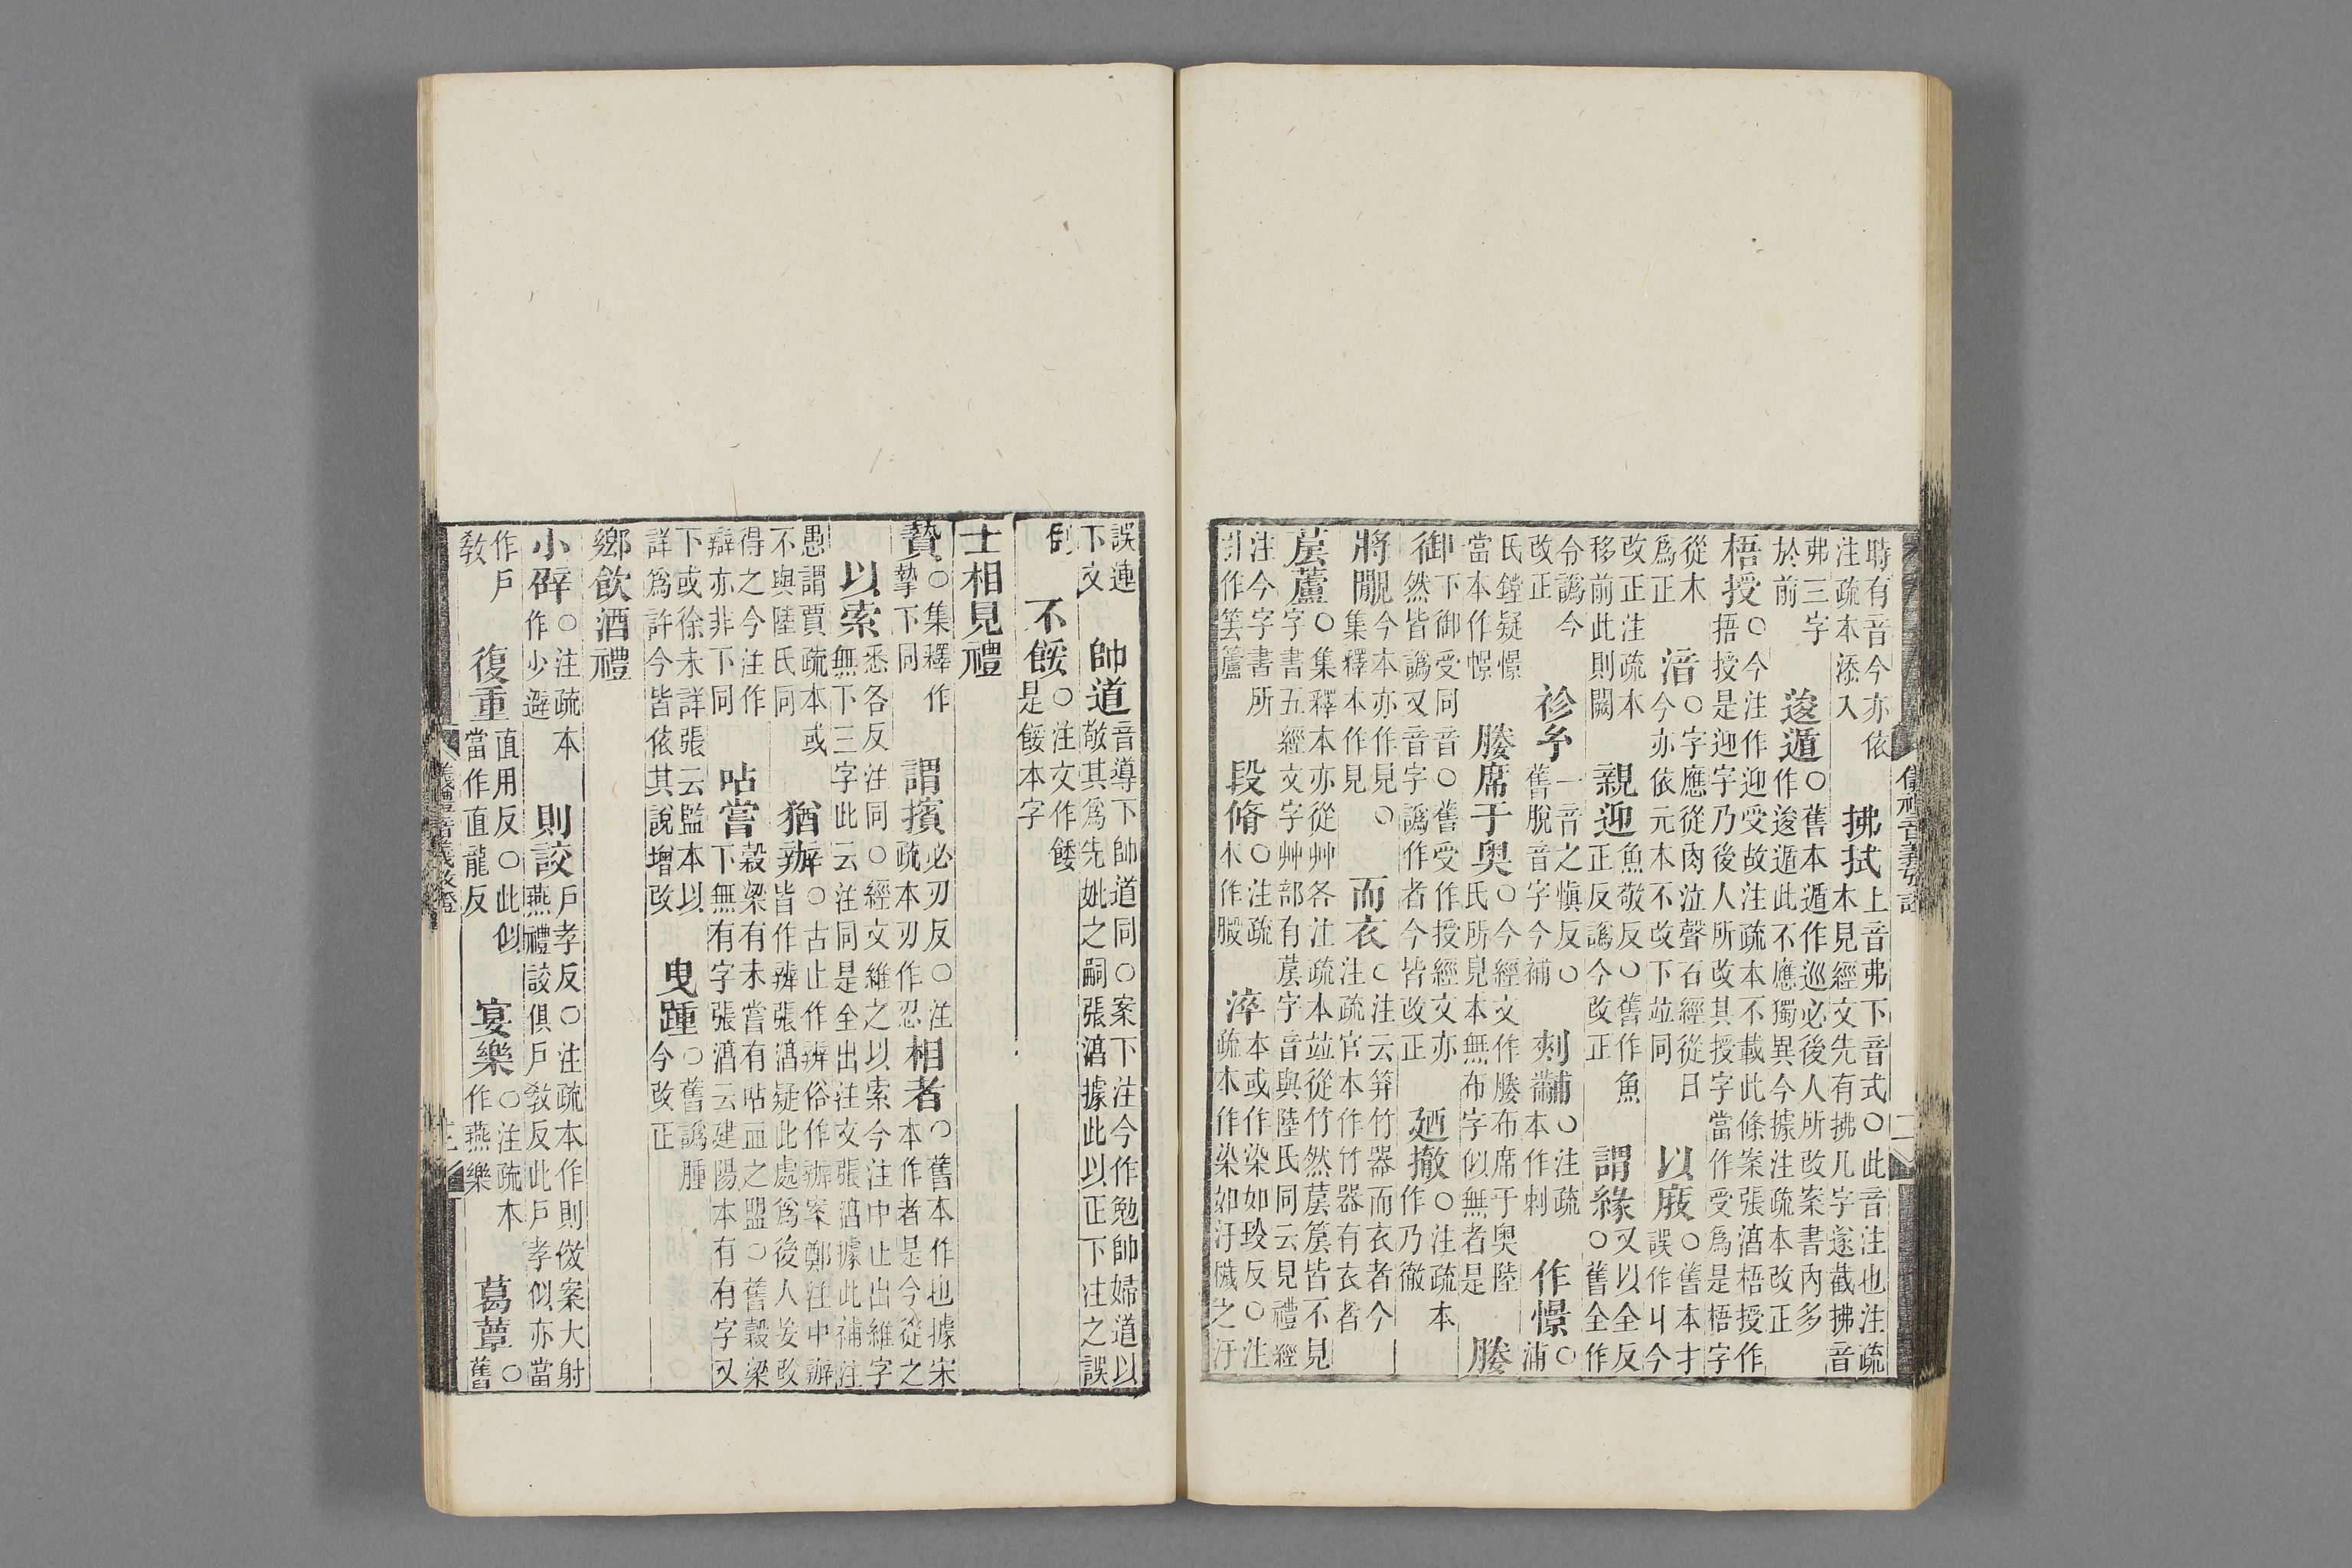 聘有音今亦依
注疏本添入
拂拭
上音弗下音式○此音注也注疏
本見經文先有拂几字遂截拂音
弗三字
於前
逡遁
○舊本遁作巡必後人所改案書內多
作逡遁此不應獨異今據注疏本改正
梧授
○今注作迎受故注疏本不載此條案張淊梧授作
捂授是迎字乃後人所改其授字當作受爲是梧字
從木
爲正
湆
○字應從肉泣聲石經從日
今亦依元本不改下竝同
以庪
○舊本才
誤作丩今
改正注疏本
移前此則闕
親迎
魚敬反○舊作魚
正反譌今改正
謂緣
又以全反
○舊全作
令譌今
改正
袗
一音之愼反○
舊脫音字今補
刺黼
○注疏
本作刺
作憬
○
浦
氏鏜疑憬
當本作幜
媵席于奥
○今經文作媵布席于奧陸
氏所見本無布字似無者是
媵
御
下御受同音○舊受作授經文亦
然皆譌又音字譌作者今皆改正
廼撤
○注疏本
作乃徹
將覵
今本亦作見○
集釋本作見
而衣
○注云笲竹器而衣者今
注疏官本作竹器有衣者
葚蘆
○集釋本亦從艸各注疏本竝從竹然葚篡篡皆不見
字書五經文字艸部有葚字音與陸氏同云見禮經
注今字書所
引作筥籚
段脩
○注疏
本作腶
淬
本或作染如琰反○注
疏本作染如汙穢之汙
誤連
下文
帥道
音導下帥道同○案下注今作勉帥婦道以
敬其爲先妣之嗣張淊據此以正下注之誤
倒
不餒
○注文作餧
是餒本字
士相見禮
贄
○集釋作
摯下同
謂擯
必刃反○注
疏本刃作忍
相者
○舊本作也據宋
本作者是今從之
以索
悉各反注同○經文維之以索今注中止出維字
無下三字此云注同是全出注文張淊據此補注
愚謂賈疏本或
不與陸氏同
猶辦
○古止作辨俗作辦案鄭注中辦
皆作辨張淊疑此處爲後人妄改
得之今注作
辯亦非下同
呫嘗
穀梁有未嘗有呫血之盟○舊穀梁
下無有字張淊云建陽本有有字又
下或徐未詳張云監本以
詳爲許今皆依其說增改
曳踵
○舊譌腫
今改正
鄉飲酒禮
小辟
○注疏本
作少避
則詨
戶孝反○注疏本作則傚案大射
燕禮詨俱戶敎反此戶孝似亦當
作戶
敎
復重
直用反○此似
當作直龍反
宴樂
○注疏本
作燕樂
葛蕈
○
舊